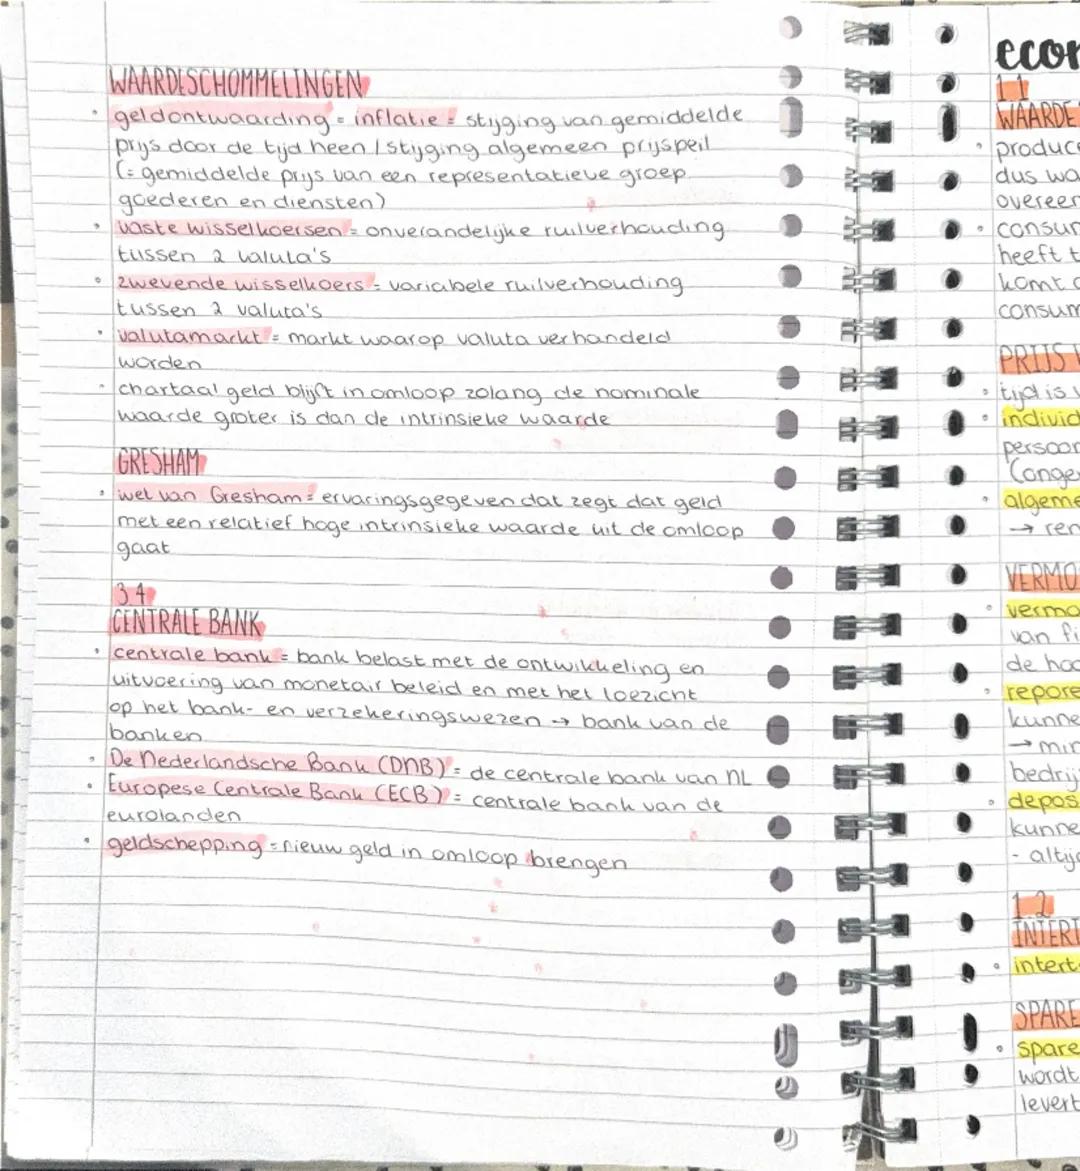 WAARDESCHOMMELINGEN
• geldontwaarding = inflatie = stijging van gemiddelde
prijs door de tijd heen / stijging algemeen prijspeil
(= gemiddelde prijs van een representatieve groep
goederen en diensten)
• vaste wisselkoersen = onverandelijke ruilverhouding
tussen 2 valuta's
• zwevende wisselkoers = variabele ruilverhouding
tussen 2 valuta's
• valutamarkt = markt waarop valuta verhandeld
worden
• chartaal geld blijft in omloop zolang de nominale
waarde groter is dan de intrinsieke waarde
GRESHAM
• wet van Gresham = ervaringsgegeven dat zegt dat geld
met een relatief hoge intrinsieke waarde uit de omloop
gaat
3.4
CENTRALE BANK
• centrale bank = bank belast met de ontwikkeling en
uitvoering van monetair beleid en met het toezicht
op het bank- en verzekeringswezen → bank van de
banken
• De Nederlandsche Bank (DNB) = de centrale bank van NL
• Europese Centrale Bank (ECB) = centrale bank van de
eurolanden
• geldschepping = nieuw geld in omloop brengen
econ
1.1
WAARDE
• produce
dus wa
overeen
• consum
heeft t
komt o
consum
PRIJS
• tijd is
• individ
persoon
(onge
• algeme
→ ren
VERMO
• vermo
van fi
de hoo
• repore
kunne
→ min
bedrij
• depos
kunne
- altij
1.2
INTERT
• intert
SPARE
• spare
wordt
levert